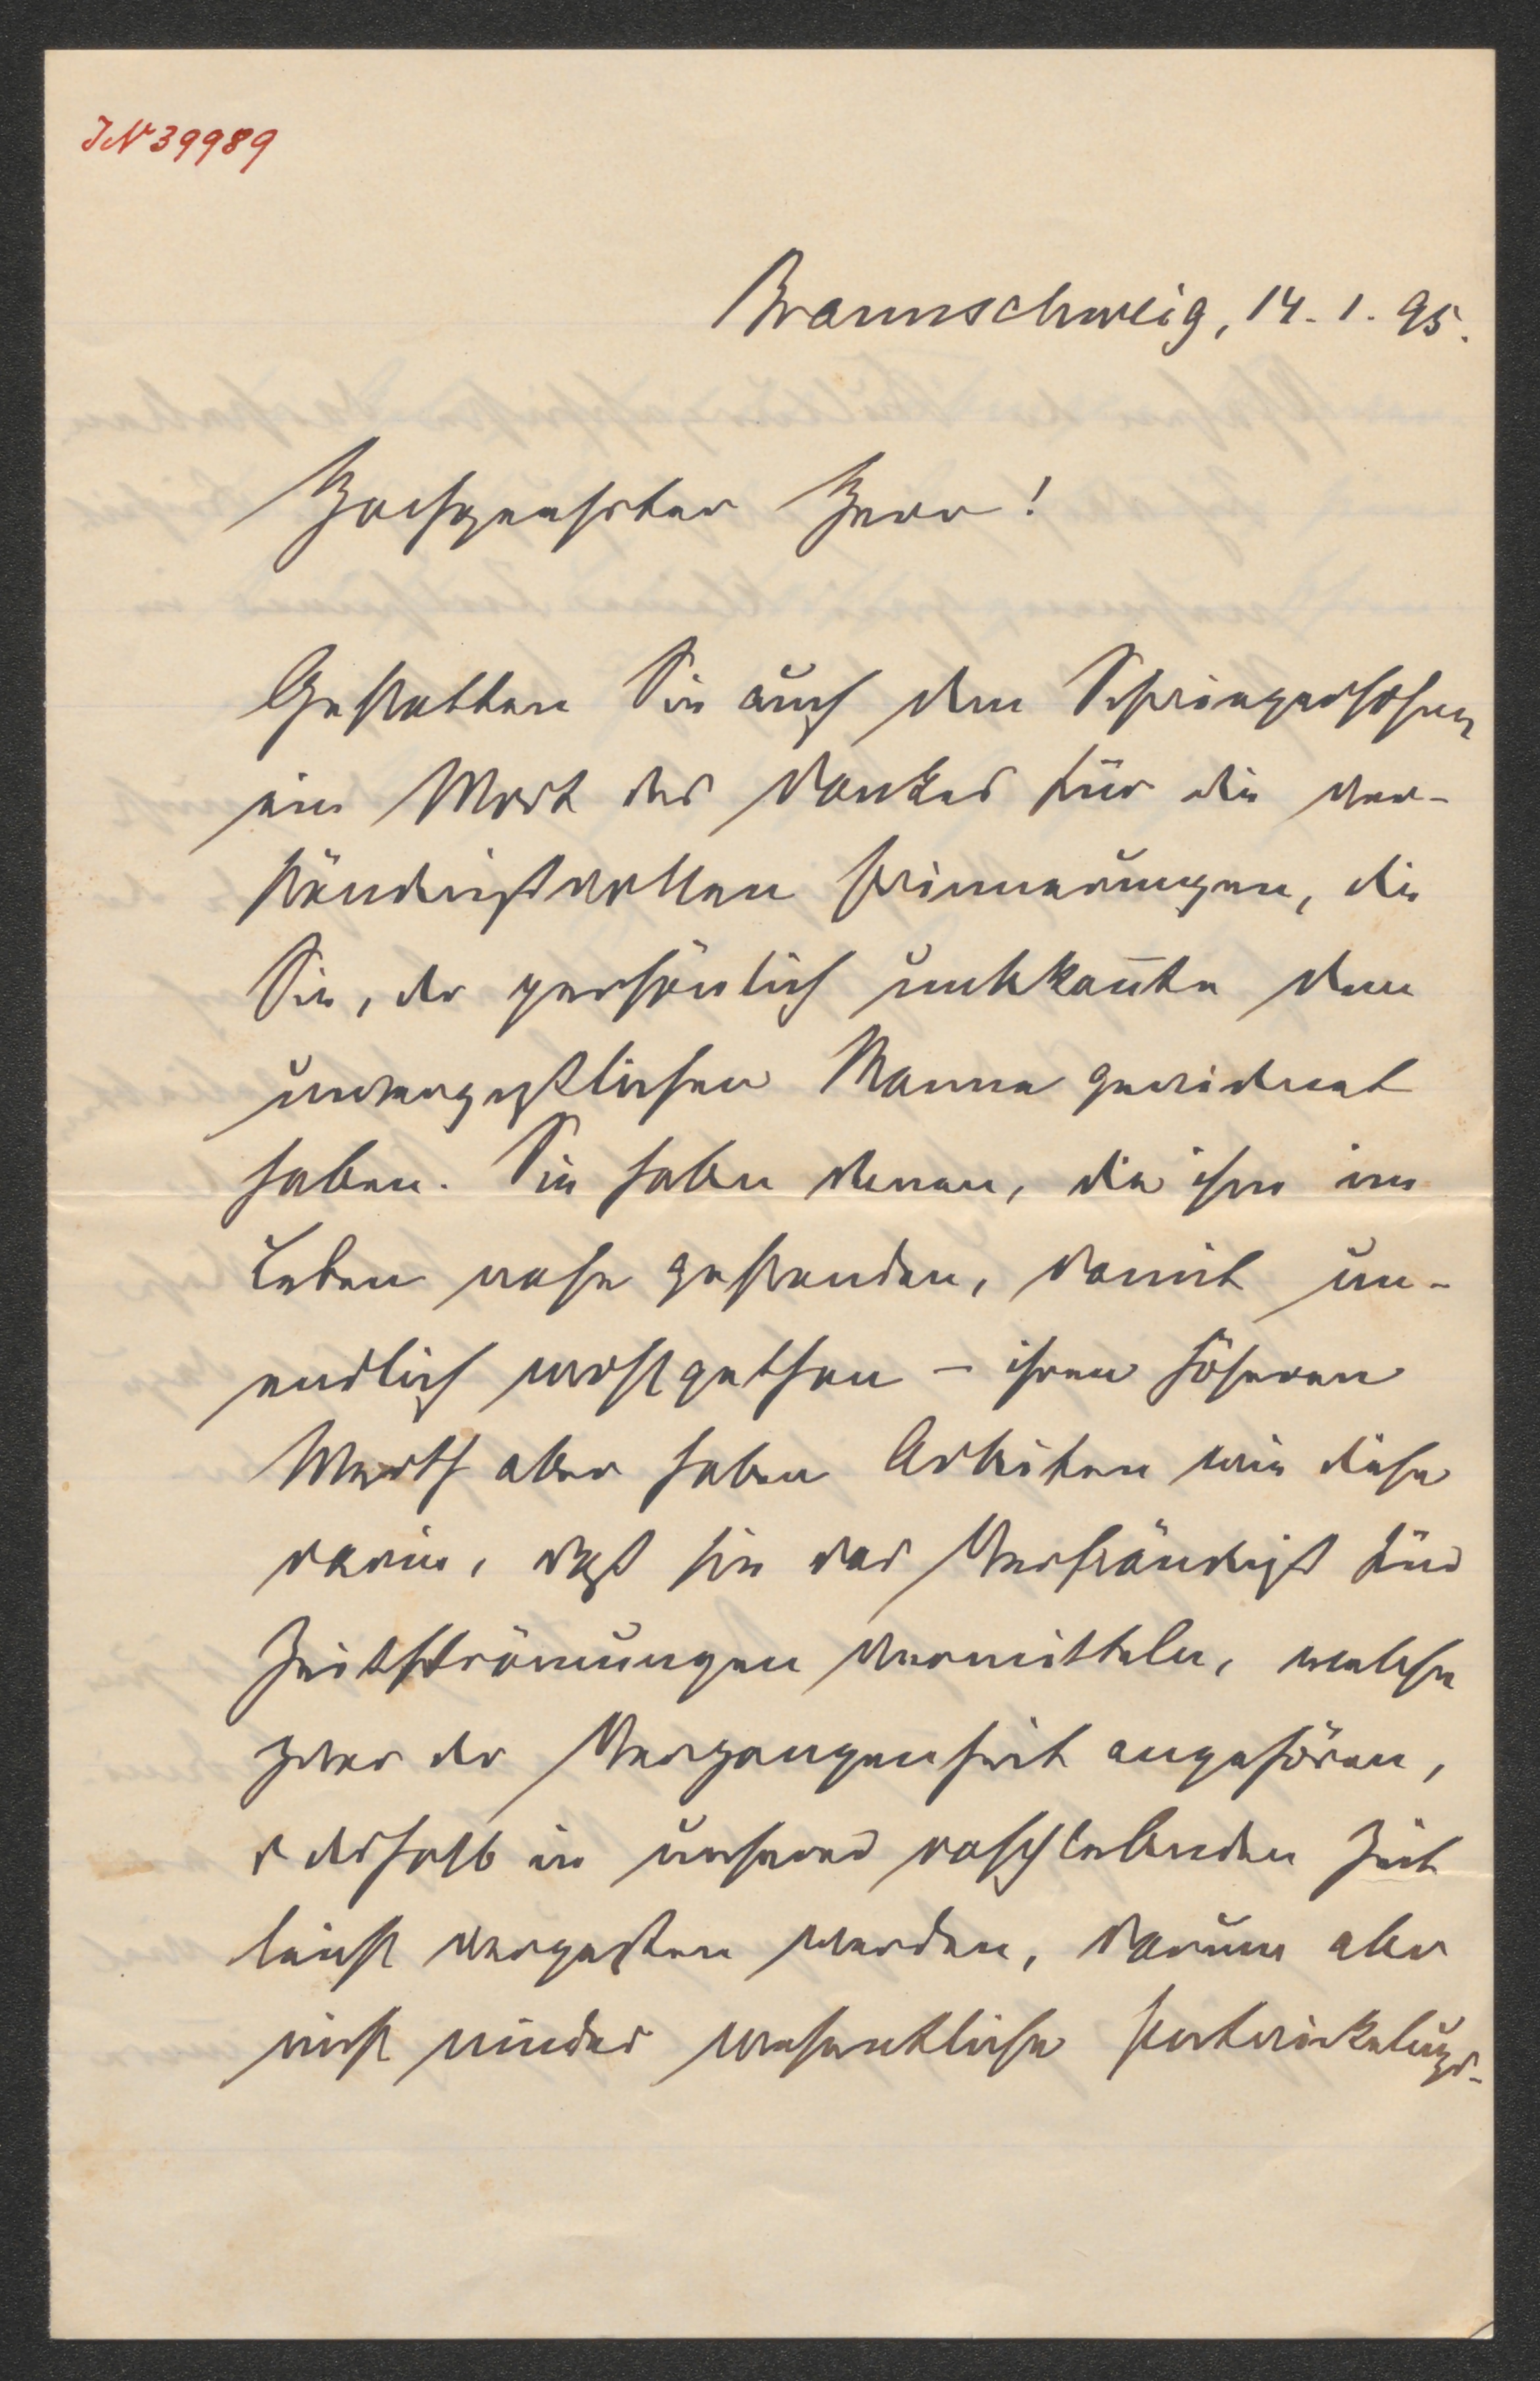 JN 39989
Braunschweig, 14. 1. 95.
Hochgeehrter Herr!
Gestatten Sie auch dem Schwiegersohne
ein Wort des Dankes für die ver-
ständnißvollen Erinnerungen, die
Sie, der persönlich unbekañte dem
unvergeßlichen Manne gewidmet
haben. Sie haben denen, die ihm im
Leben nahe gestanden, damit un-
endlich wohlgethan – ihren höheren
Werth aber haben Arbeiten wie diese
darin, daß sie das Verständniß für
Zeitströmungen vermitteln, welche
zwar der Vergangenheit angehören,
deshalb in unserer raschlebenden Zeit
leicht vergessen werden, darum aber
nicht minder wesentliche Entwickelungs-